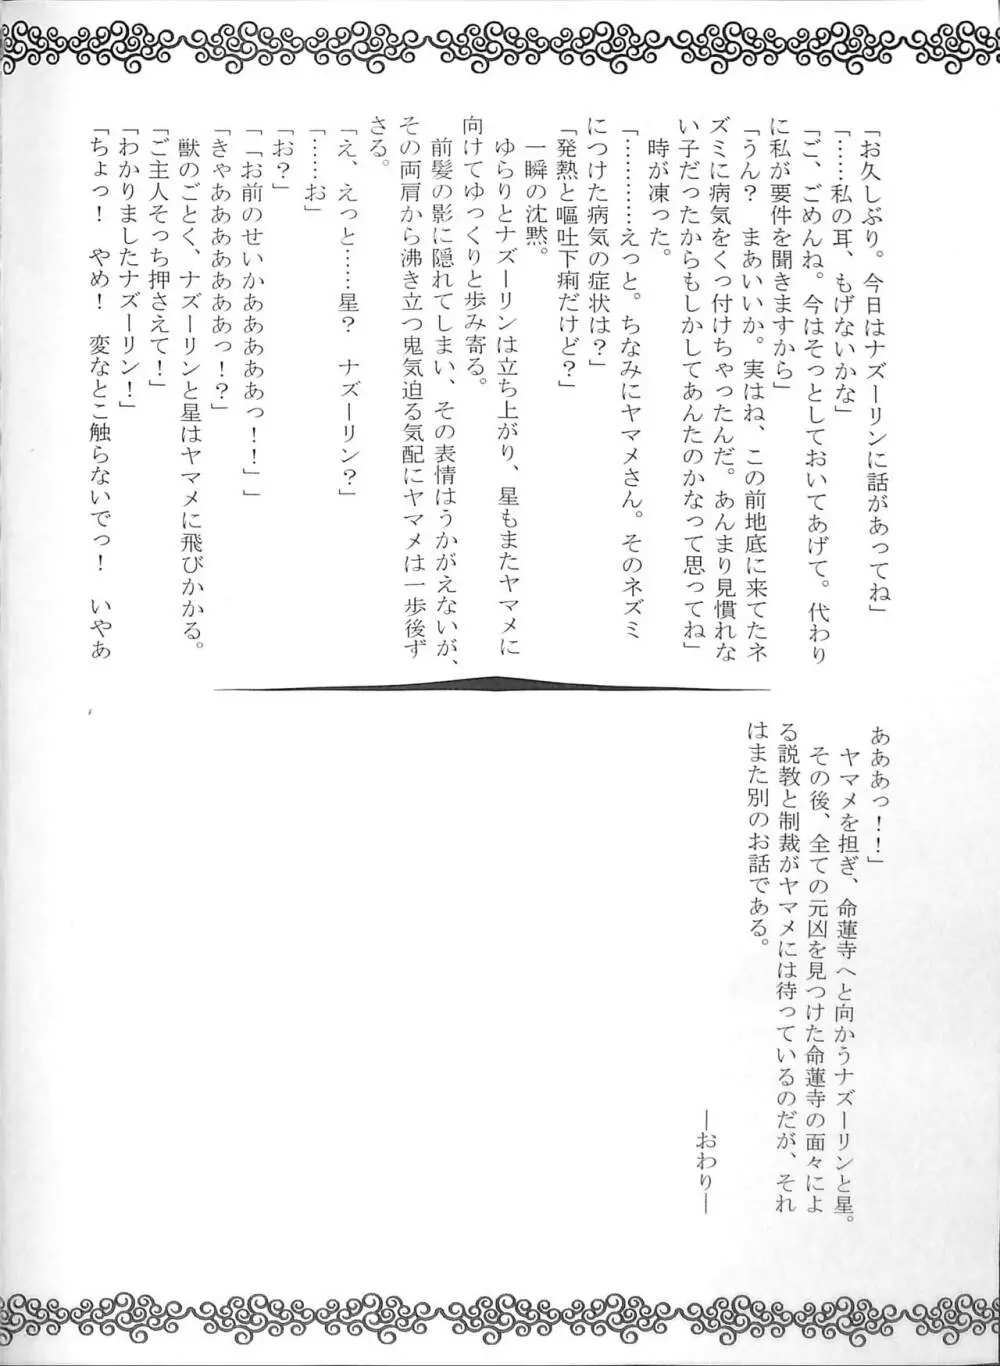 「お久しぶり。今日はナズーリンに話があってね」
「……私の耳、もげないかな」
「ご、ごめんね。今はそっとしておいてあげて。代わり
に私が要件を聞きますから」
「うん？　まあいいか。実はね、この前地底に来てたネ
ズミに病気をくっ付けちゃったんだ。あんまり見慣れな
い子だったからもしかしてあんたのかなって思ってね」
時が凍った。
「…………えっと。ちなみにヤマメさん。そのネズミ
につけた病気の症状は？」
「発熱と嘔吐下痢だけど？」
一瞬の沈黙。
ゆらりとナズーリンは立ち上がり、星もまたヤマメに
向けてゆっくりと歩み寄る。
前髪の影に隠れてしまい、その表情はうかがえないが、
その両肩から沸き立つ鬼気迫る気配にヤマメは一歩後ず
さる。
「え、えっと……星？　ナズーリン？」
「……お」
「お？」
「「お前のせいかああああぁっ！！」」
「きゃああああああああっ！？」
獣のごとく、ナズーリンと星はヤマメに飛びかかる。
「ご主人そっち押さえて！」
「わかりましたナズーリン！」
「ちょっ！　やめ！　変なとこ触らないでっ！　いやあ
あああっ！！」
ヤマメを担ぎ、命蓮寺へと向かうナズーリンと星。
その後、全ての元凶を見つけた命蓮寺の面々によ
る説教と制裁がヤマメには待っているのだが、それ
はまた別のお話である。
―おわり―